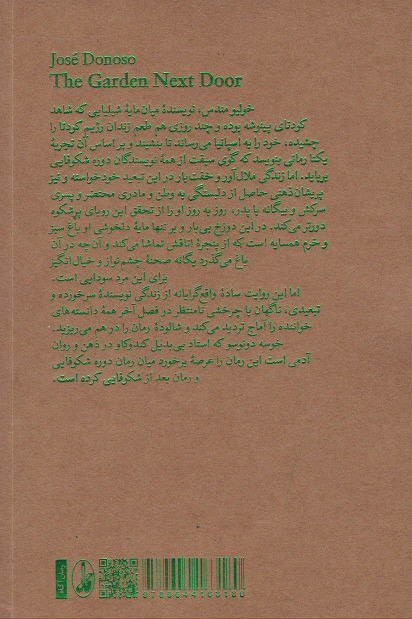 José Donoso
The Garden Next Door
خولیو مندس، نویسندهٔ میان‌مایهٔ شیلیایی که شاهد
کودتای پینوشه بوده و چند روزی هم طعم زندان رژیم کودتا را
چشیده، خود را به اسپانیا می‌رساند تا بنشیند و بر اساس آن تجربهٔ
یکتا رمانی بنویسد که گوی سبقت از همهٔ نویسندگان دوره شکوفایی
برباید. اما زندگی ملال‌آور و خفت‌بار در این تبعید خودخواسته و نیز
پریشان‌ذهنی حاصل از دلبستگی به وطن و مادری محتضر و پسری
سرکش و بیگانه با پدر، روز به روز او را از تحقق این رویای پرشکوه
دورتر می‌کند. در این دوزخ بی‌بار و بر تنها مایهٔ دلخوشی او باغ سبز
و خرم همسایه است که از پنجرهٔ اتاقش تماشا می‌کند و آن چه در آن
باغ می‌گذرد یگانه صحنهٔ چشم‌نواز و خیال‌انگیز
برای این مرد سودایی است.
اما این روایت سادهٔ واقع‌گرایانه از زندگی نویسندهٔ سرخورده و
تبعیدی، ناگهان با چرخشی نامنتظر در فصل آخر همهٔ دانسته‌های
خواننده را آماج تردید می‌کند و شالودهٔ رمان را در هم می‌ریزد.
خوسه دونوسو که استاد بی‌بدیل کندوکاو در ذهن و روان
آدمی است این رمان را عرصهٔ برخورد میان رمان دوره شکوفایی
و رمان بعد از شکوفایی کرده است.
رمان آگاه